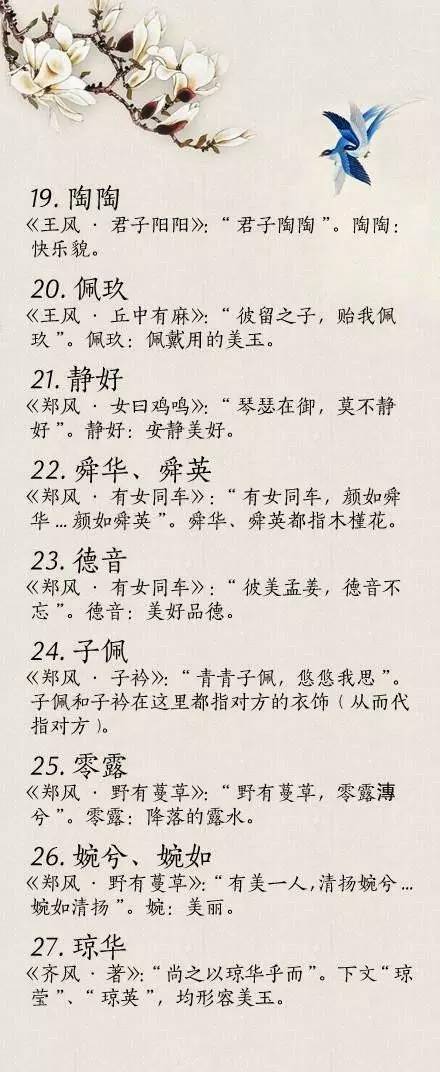 19. 陶陶
《王风 · 君子阳阳》：“君子陶陶”。陶陶：
快乐貌。
20. 佩玖
《王风 · 丘中有麻》：“彼留之子，贻我佩
玖”。佩玖：佩戴用的美玉。
21. 静好
《郑风 · 女曰鸡鸣》：“琴瑟在御，莫不静
好”。静好：安静美好。
22. 舜华、舜英
《郑风 · 有女同车》：“有女同车，颜如舜
华...颜如舜英”。舜华、舜英都指木槿花。
23. 德音
《郑风 · 有女同车》：“彼美孟姜，德音不
忘”。德音：美好品德。
24. 子佩
《郑风 · 子衿》：“青青子佩，悠悠我思”。
子佩和子衿在这里都指对方的衣饰（从而代
指对方）。
25. 零露
《郑风 · 野有蔓草》：“野有蔓草，零露漙
兮”。零露：降落的露水。
26. 婉兮、婉如
《郑风 · 野有蔓草》：“有美一人,清扬婉兮...
婉如清扬”。婉：美丽。
27. 琼华
《齐风 · 著》：“尚之以琼华乎而”。下文“琼
莹”、“琼英”，均形容美玉。